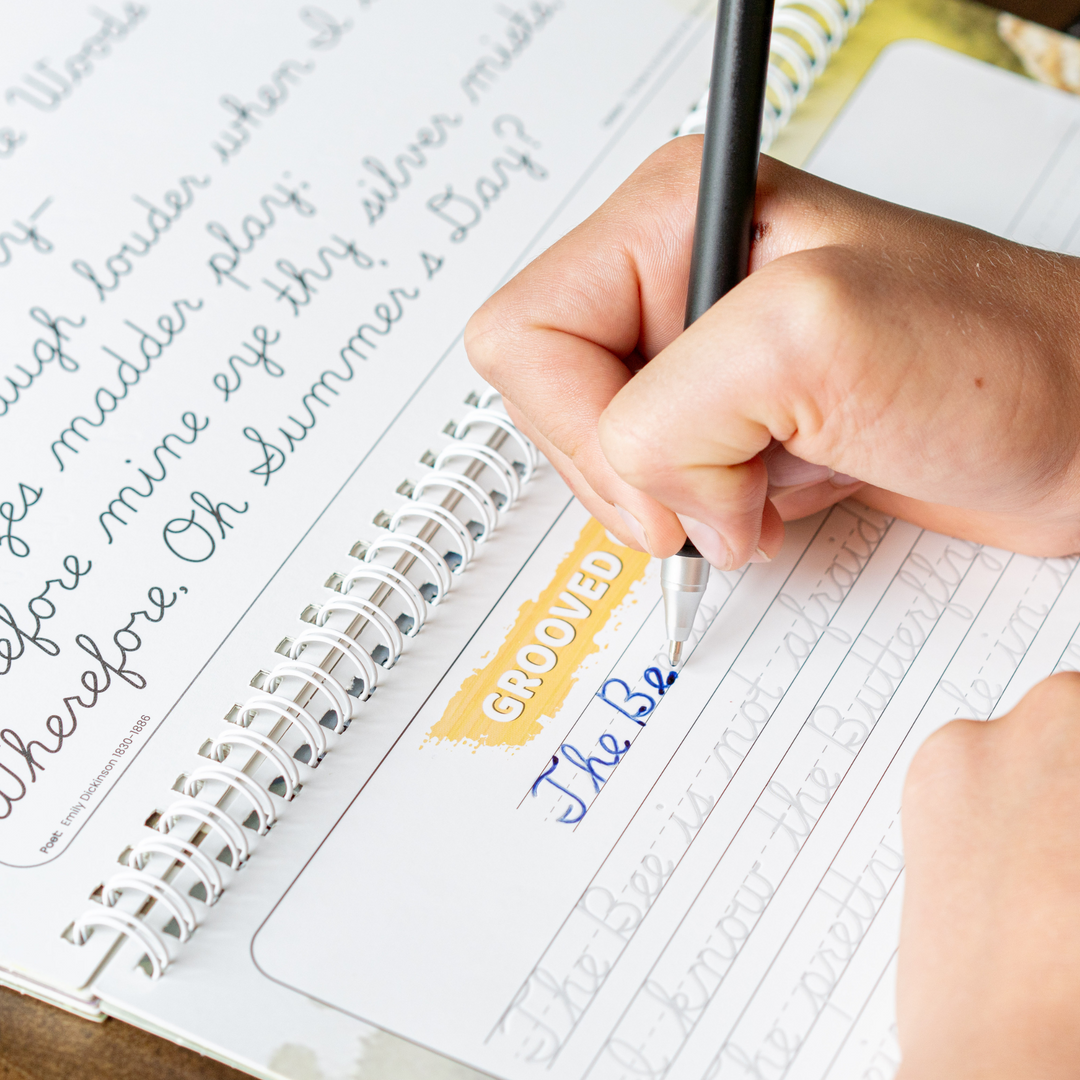 Woods
when I
augh louder
madder play;
before mine eye thy silver mists
Wherefore, Oh Summer s Day?
Poet: Emily Dickinson 1830-1886
GROOVED
The Be
The Bee is not afraid
I know the Butterfly
The pretty in